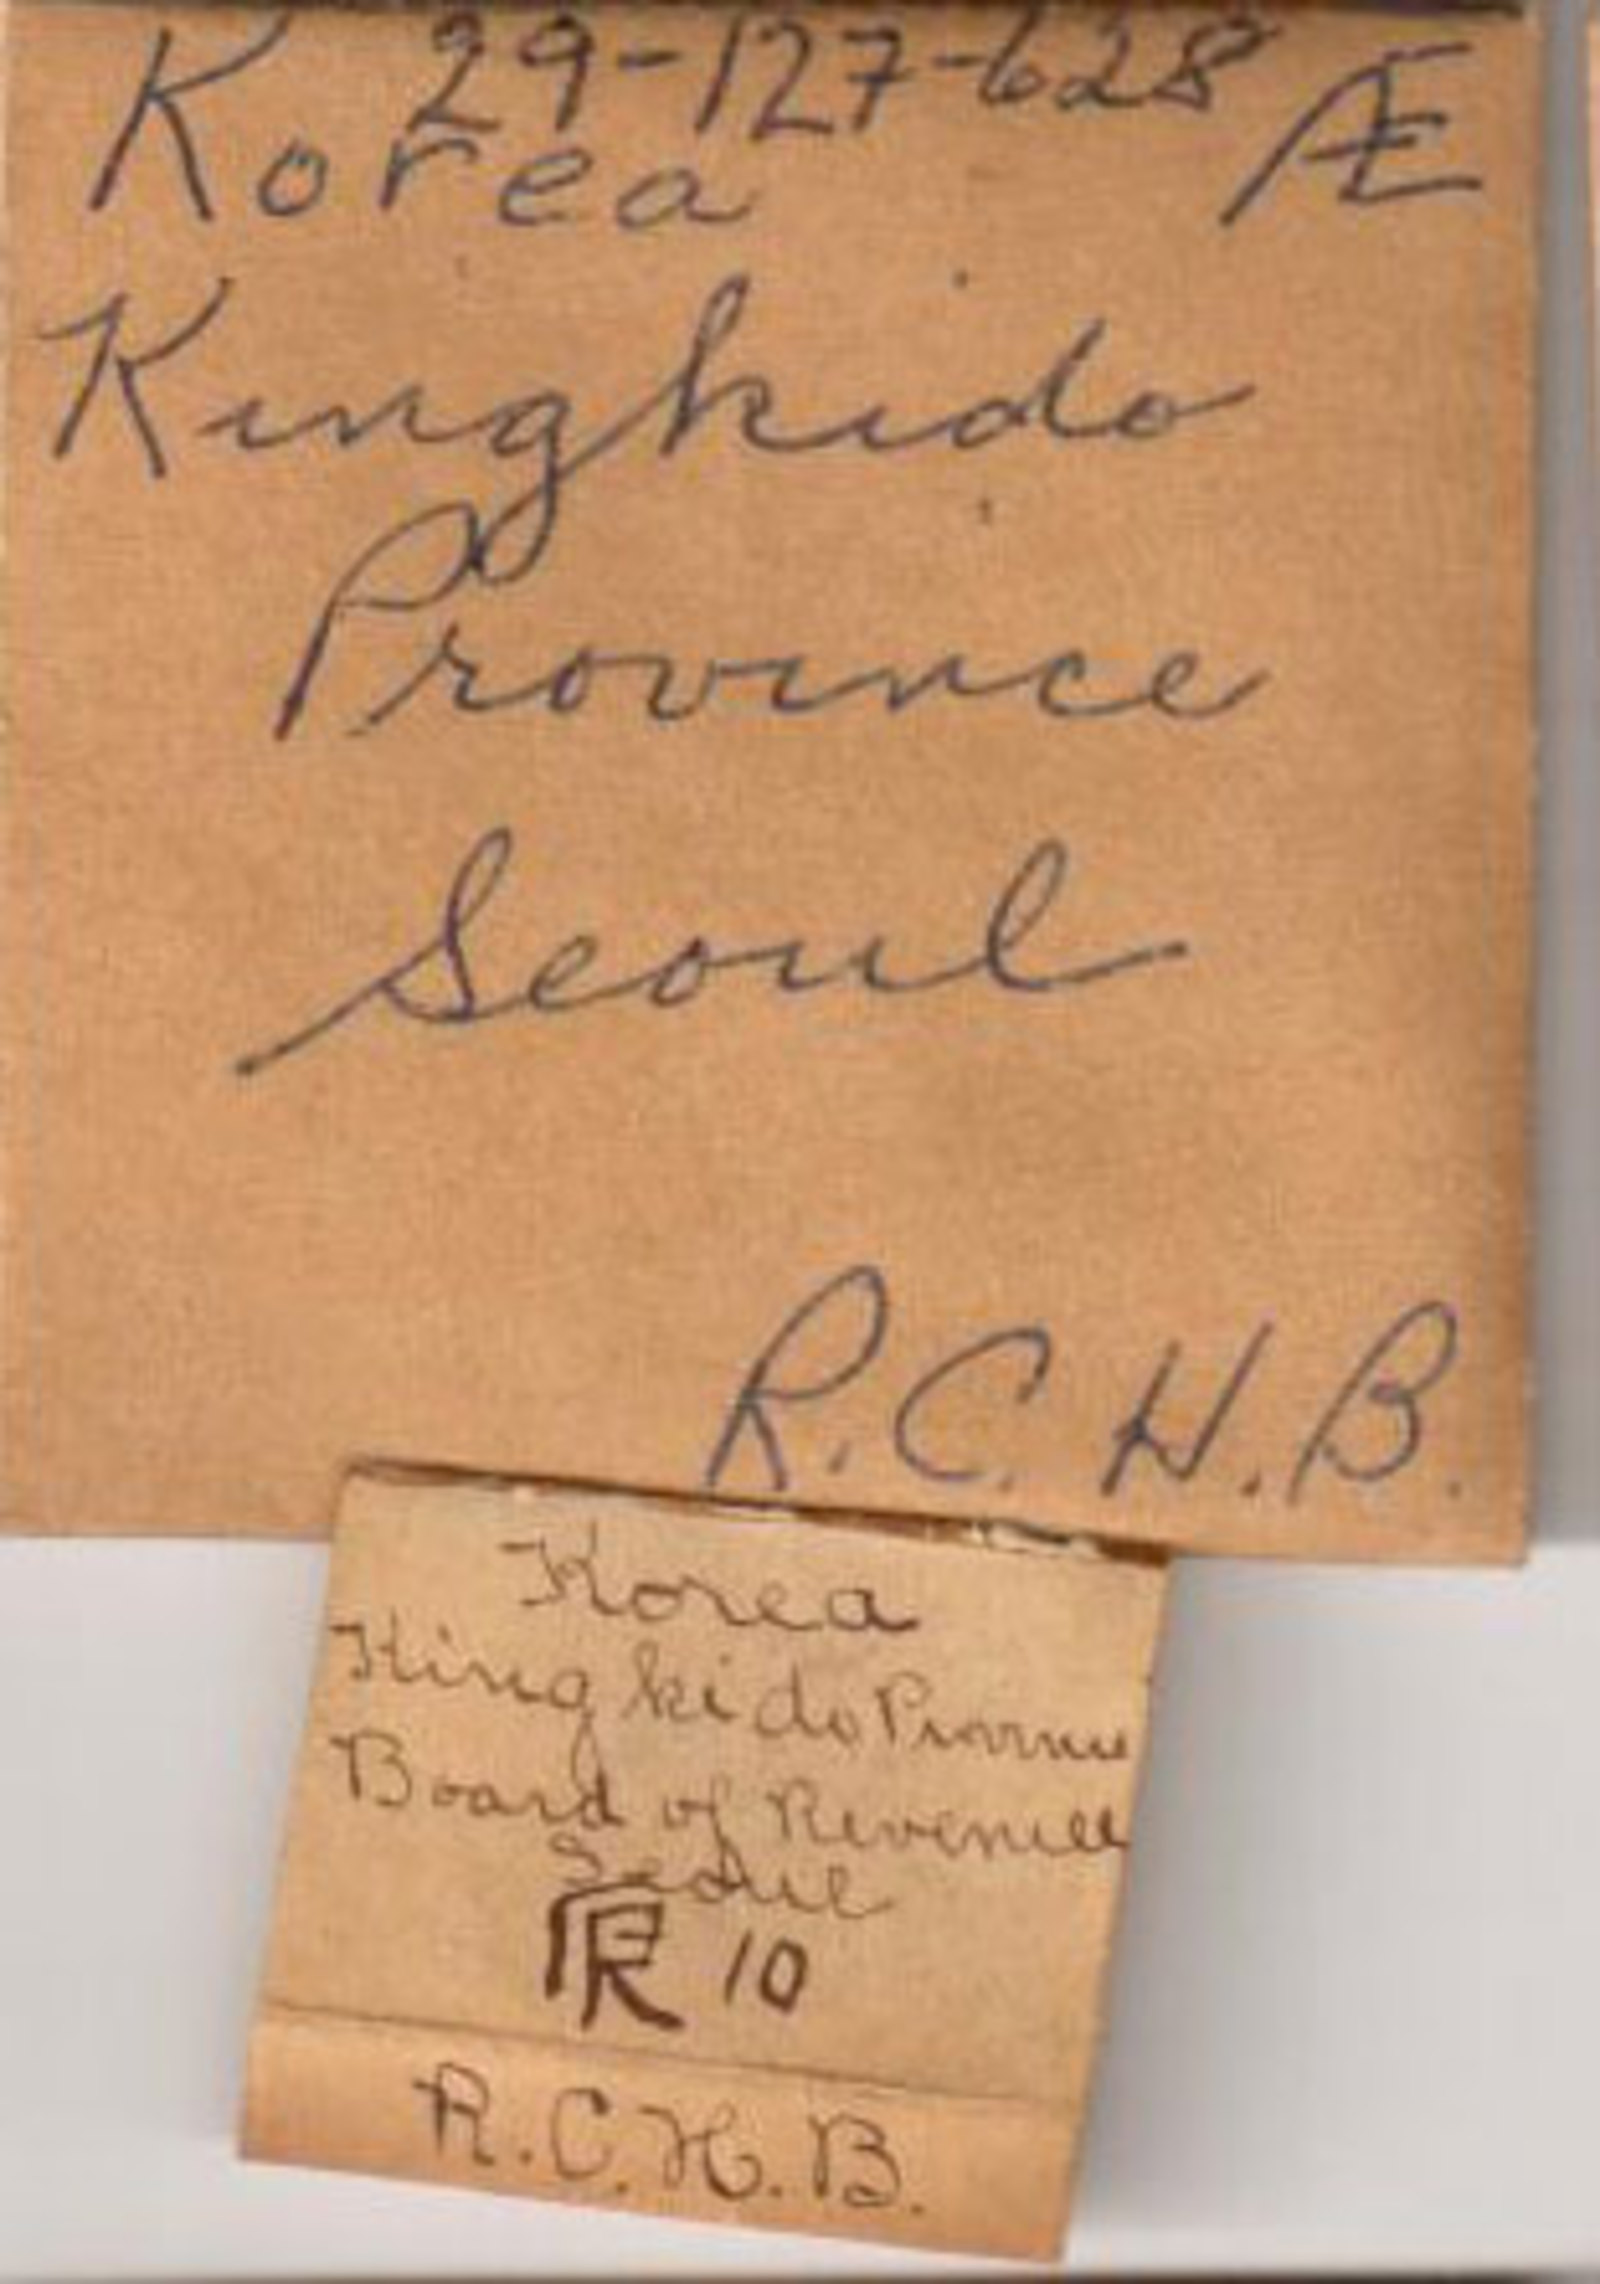 29-127-628
Korea Æ
Kingkido
Province
Seoul
R.C.H.B.
Korea
Kingkido Province
Board of Revenue
Seoul
10
R.C.H.B.